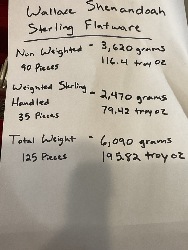 Wallace Shenandoah
Sterling Flatware
Non Weighted = 3,620 grams
90 Pieces 116.4 troy oz
Weighted Sterling
Handled = 2,470 grams
35 Pieces 79.42 troy oz
Total Weight = 6,090 grams
125 Pieces 195.82 troy oz